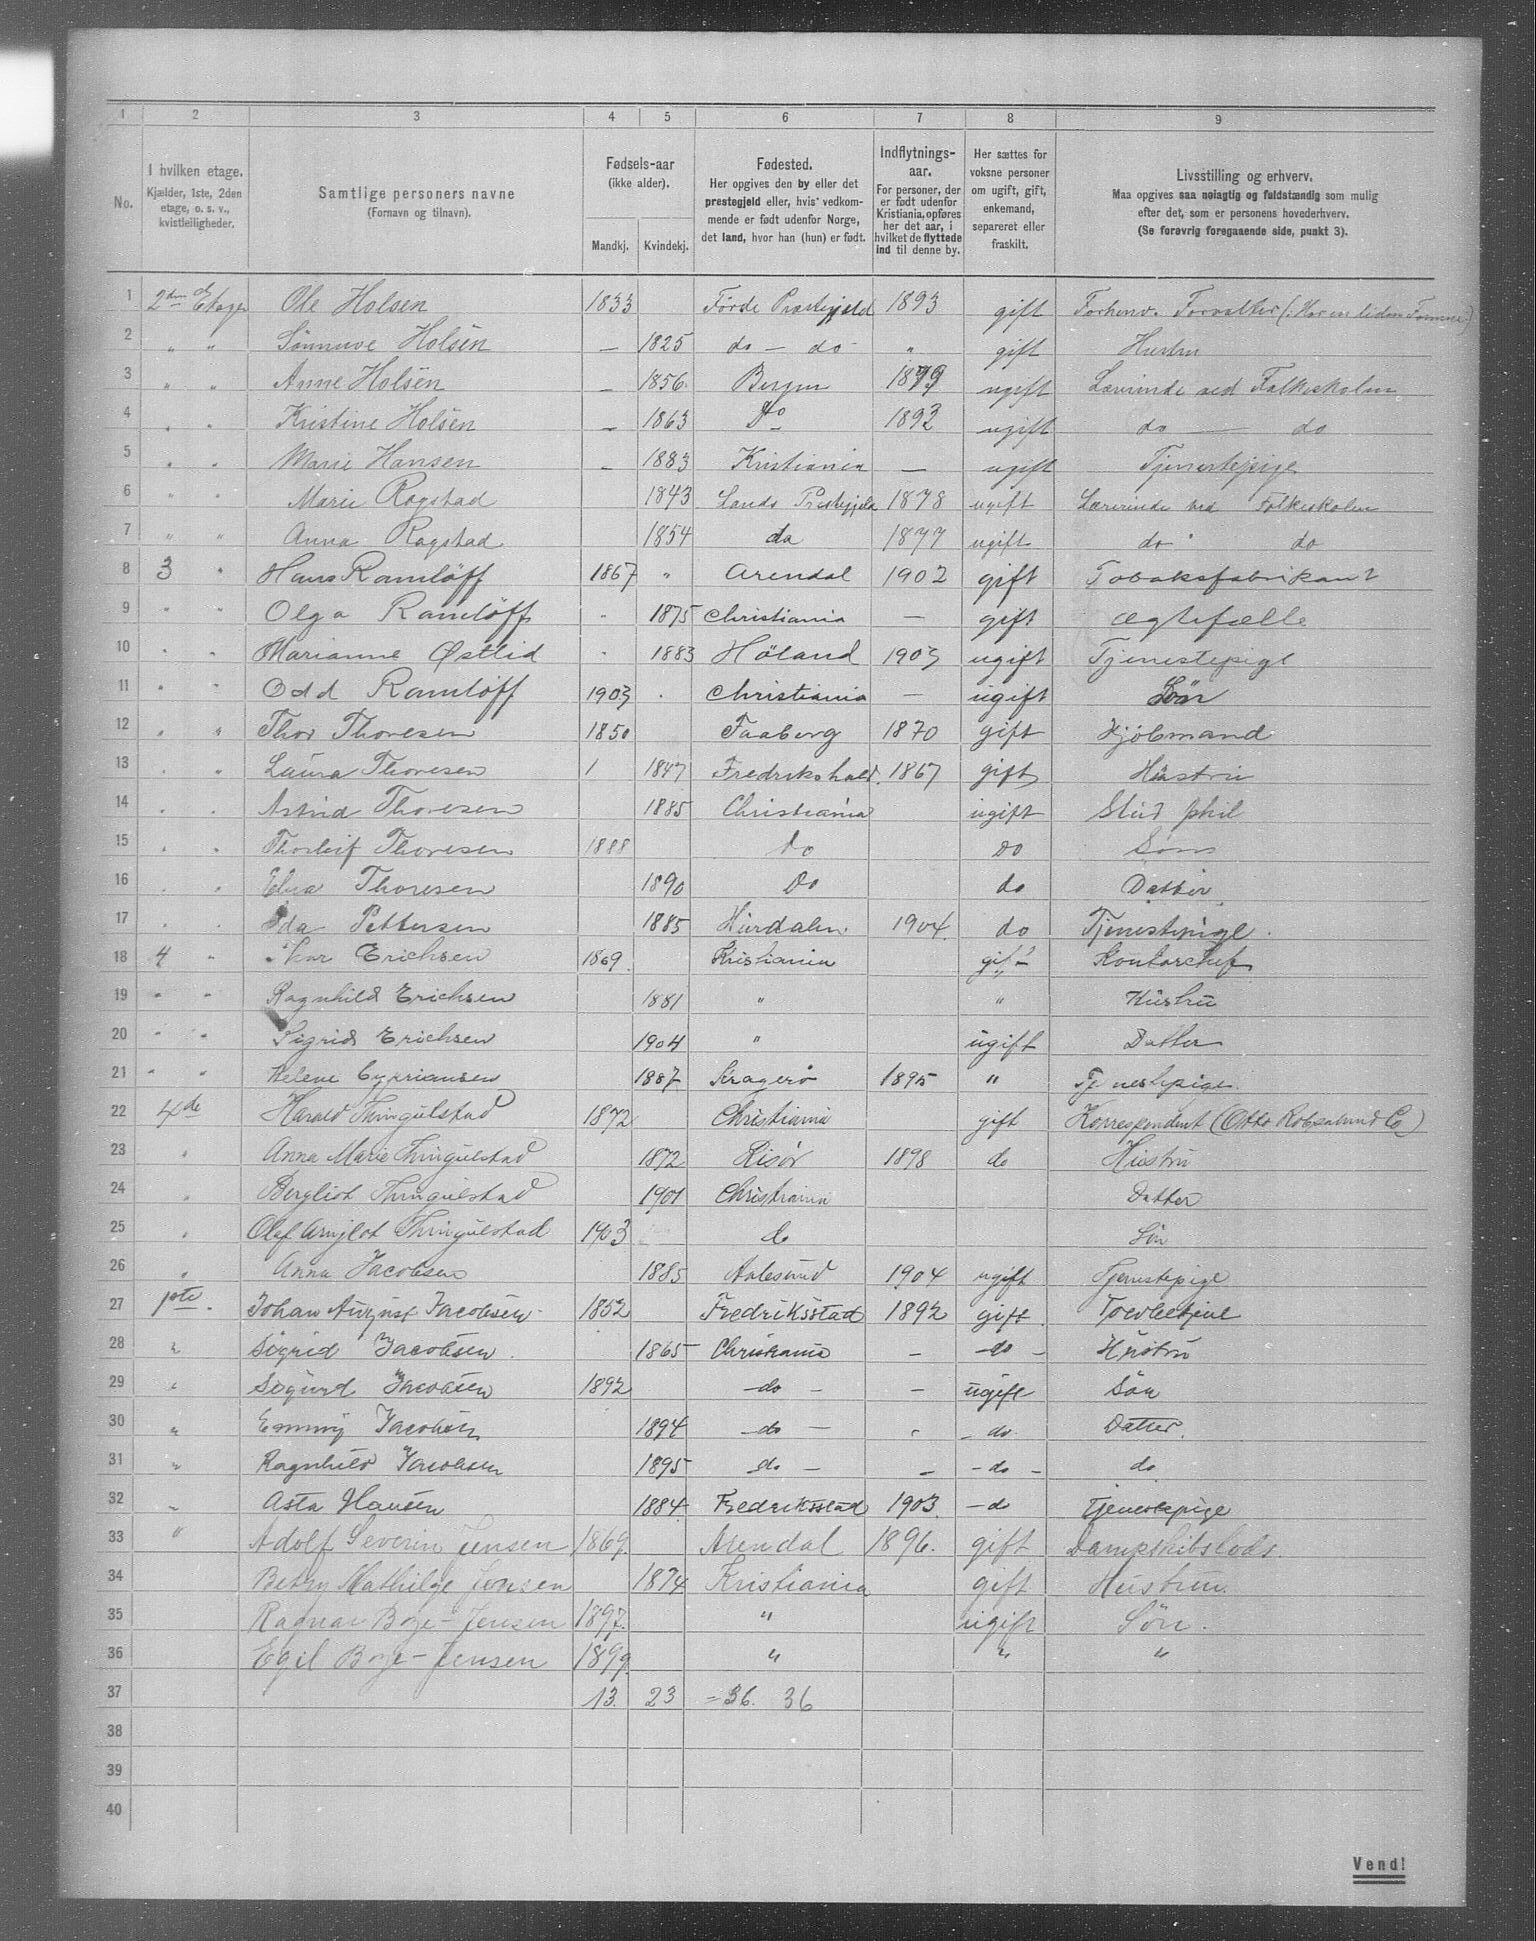 1 2 3 4 5 6 7 8 9
No.
I hvilken etage.
Kjælder, 1ste, 2den
etage, o. s. v.,
kvistleiligheder.
Samtlige personers navne
(Fornavn og tilnavn).
Fødsels-aar
(ikke alder).
Mandkj. Kvindekj.
Fødested.
Her opgives den by eller det
prestegjeld eller, hvis vedkom-
mende er født udenfor Norge,
det land, hvor han (hun) er født.
Indflytnings-
aar.
For personer, der
er født udenfor
Kristiania, opføres
her det aar, i
hvilket de flyttede
ind til denne by.
Her sættes for
voksne personer
om ugift, gift,
enkemand,
separeret eller
fraskilt.
Livsstilling og erhverv.
Maa opgives saa nøiagtig og fuldstændig som mulig
efter det, som er personens hovederhverv.
(Se forøvrig foregaaende side, punkt 3).
1 2den Etage Ole Holsen 1833 Førde Præstegjeld 1893 gift Forhenv. Forvalter (: Har en liden Formue)
2 " " Sønneve Holsen — 1825 do — do " gift Hustru
3 " " Anne Holsen — 1856 Bergen 1879 ugift Lærerinde ved Folkeskolen
4 " " Kristine Holsen — 1863 Do 1892 ugift do — do
5 " " Marie Hansen — 1883 Kristiania — ugift Tjenestepige
6 " " Marie Rogstad 1843 Lands Prestegjeld 1878 ugift Lærerinde ved Folkeskolen
7 " " Anna Rogstad 1854 do 1877 ugift do " do
8 3 " Hans Ramlöff 1867 " Arendal 1902 gift Tobaksfabrikant
9 " " Olga Ramlöff " 1875 Christiania — gift ægtefælle
10 " " Marianne Østlid " 1883 Höland 1903 ugift Tjenestepige
11 " " Odd Ramlöff 1903 . Christiania — ugift Sön
12 " " Thor Thoresen 1850 Faaberg 1870 gift Kjöbmand
13 . " Laura Thoresen 1847 Fredrikshald 1867 gift Hustru
14 . . Astrid Thoresen 1885 Christiania ugift Stud phil
15 . " Thorleif Thoresen 1888 do Do Søn
16 . " Elna Thoresen 1890 Do do Datter
17 . . Ida Pettersen 1885 Hurdalen 1904 do Tjenestepige.
18 4 " Erichsen 1869 Kristiania gift Kontorchef
19 " " Ragnhild Erichsen 1881 " " Hustru
20 " " Sigrid Erichsen 1904 " ugift Datter
21 " " Helene Cypriansen 1887 Kragerø 1895 " Tjenestepige
22 4de Harald Thingulstad 1872 Christiania gift Korrespondent (Otto Robsahm & Co)
23 " Anna Marie Thingulstad 1872 Risör 1898 do Hustru
24 " Bergliot Thingulstad 1901 Christiania Datter
25 " Olaf Arnjlot Thingulstad 1903 do Sön
26 " Anna Jacobsen 1885 Aalesund 1904 ugift Tjenestepige
27 1ste. Johan August Jacobsen 1852 Fredriksstad 1892 gift Toldbetjent
28 " Sigrid Jacobsen 1865 Christiania — — do — Hustru
29 " Sigurd Jacobsen 1892 — do — — ugift Sön
30 " Emmy Jacobsen 1894 — do — — do Datter
31 " Ragnhild Jacobsen 1895 do — — — do — do
32 " Asta Hansen 1884 Fredriksstad 1903 — do Tjenestepige
33 " Adolf Severin Jensen 1869 Arendal 1896. gift Dampskibslods.
34 Betzy Mathilde Jensen 1874 Kristiania gift Hustru
35 Ragnar Boye-Jensen 1897. " ugift Sön.
36 Egil Boye-Jensen 1899 " " "
37 13. 23 = 36. 36
38
39
40
Vend!